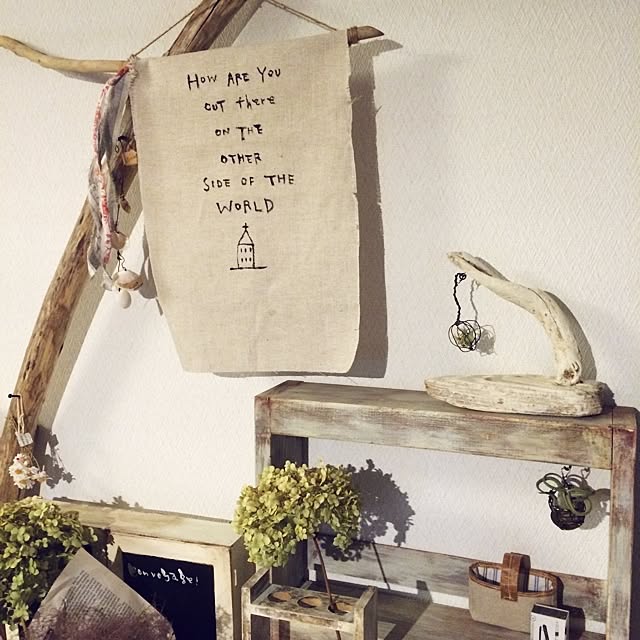 HOW ARE YOU
OUT there
ON THE
OTHER
SIDE OF THE
WORLD